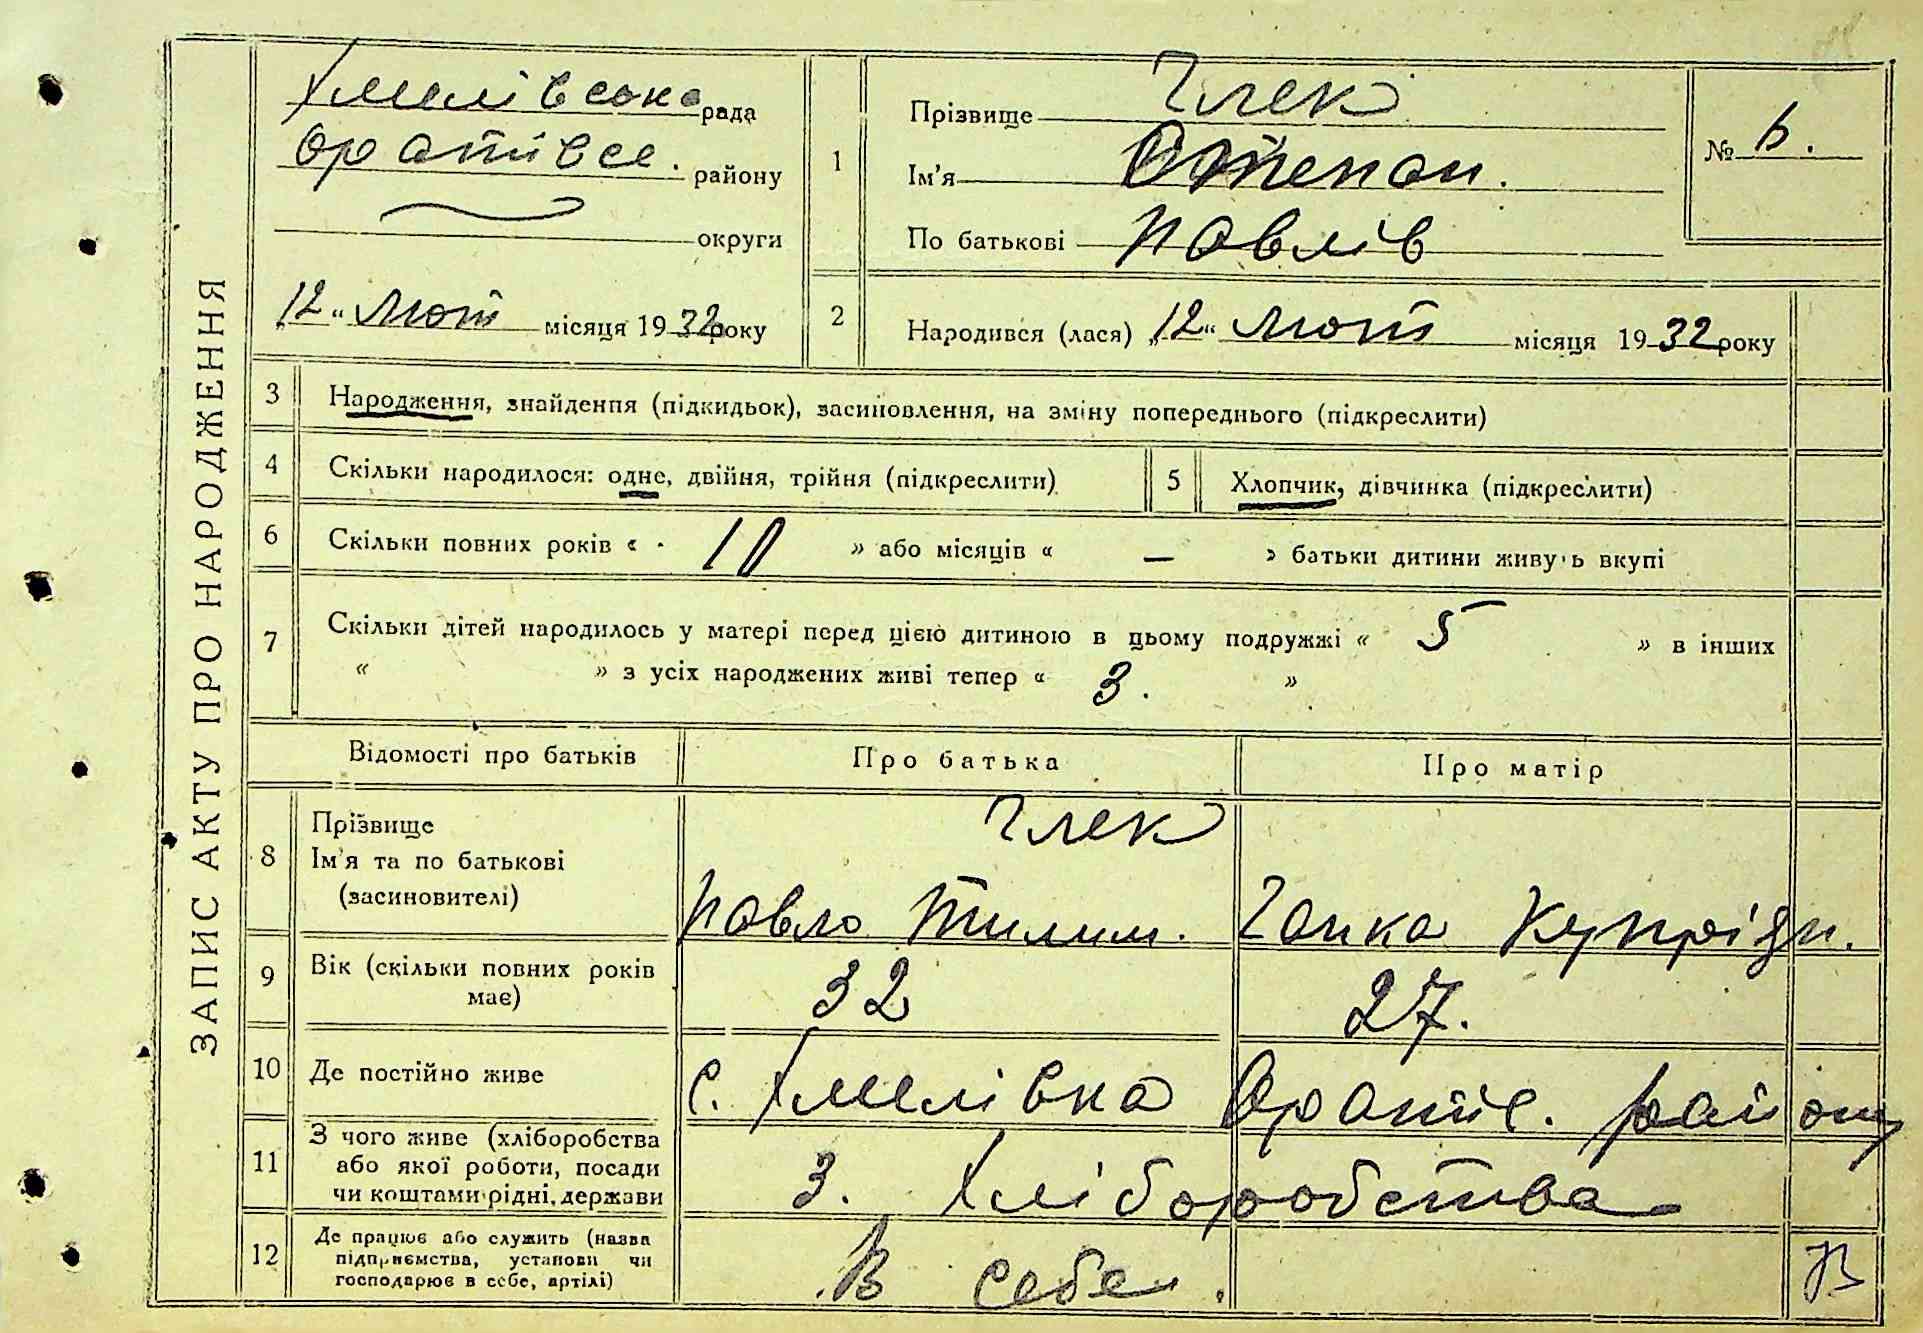 ЗАПИС АКТУ ПРО НАРОДЖЕННЯ
Хмелівська рада
Оратівсь. району
округи
„12“ Лют місяця 1932 року
1
Прізвище Глек
Ім'я Степан.
По батькові Павлів
№ 6.
2
Народився (лася) „12“ Лют місяця 1932 року
3 Народження, знайдення (підкидьок), засиновлення, на зміну попереднього (підкреслити)
4 Скільки народилося: одне, двійня, трійня (підкреслити)
5 Хлопчик, дівчинка (підкреслити)
6 Скільки повних років « 10 » або місяців « — » батьки дитини живуть вкупі
7 Скільки дітей народилось у матері перед цією дитиною в цьому подружжі « 5 » в інших
« » з усіх народжених живі тепер « 3. »
Відомості про батьків Про батька Про матір
8 Прізвище
Ім'я та по батькові
(засиновителі)
Глек
Павло Тилим. Ганка Купріян.
9 Вік (скільки повних років
має)
32 27.
10 Де постійно живе с. Хмелівка Оратів. району
11 З чого живе (хліборобства
або якої роботи, посади
чи коштами рідні, держави
З. Хліборобства
12 Де працює або служить (назва
підприємства, установи чи
господарює в себе, артілі)
В себе.